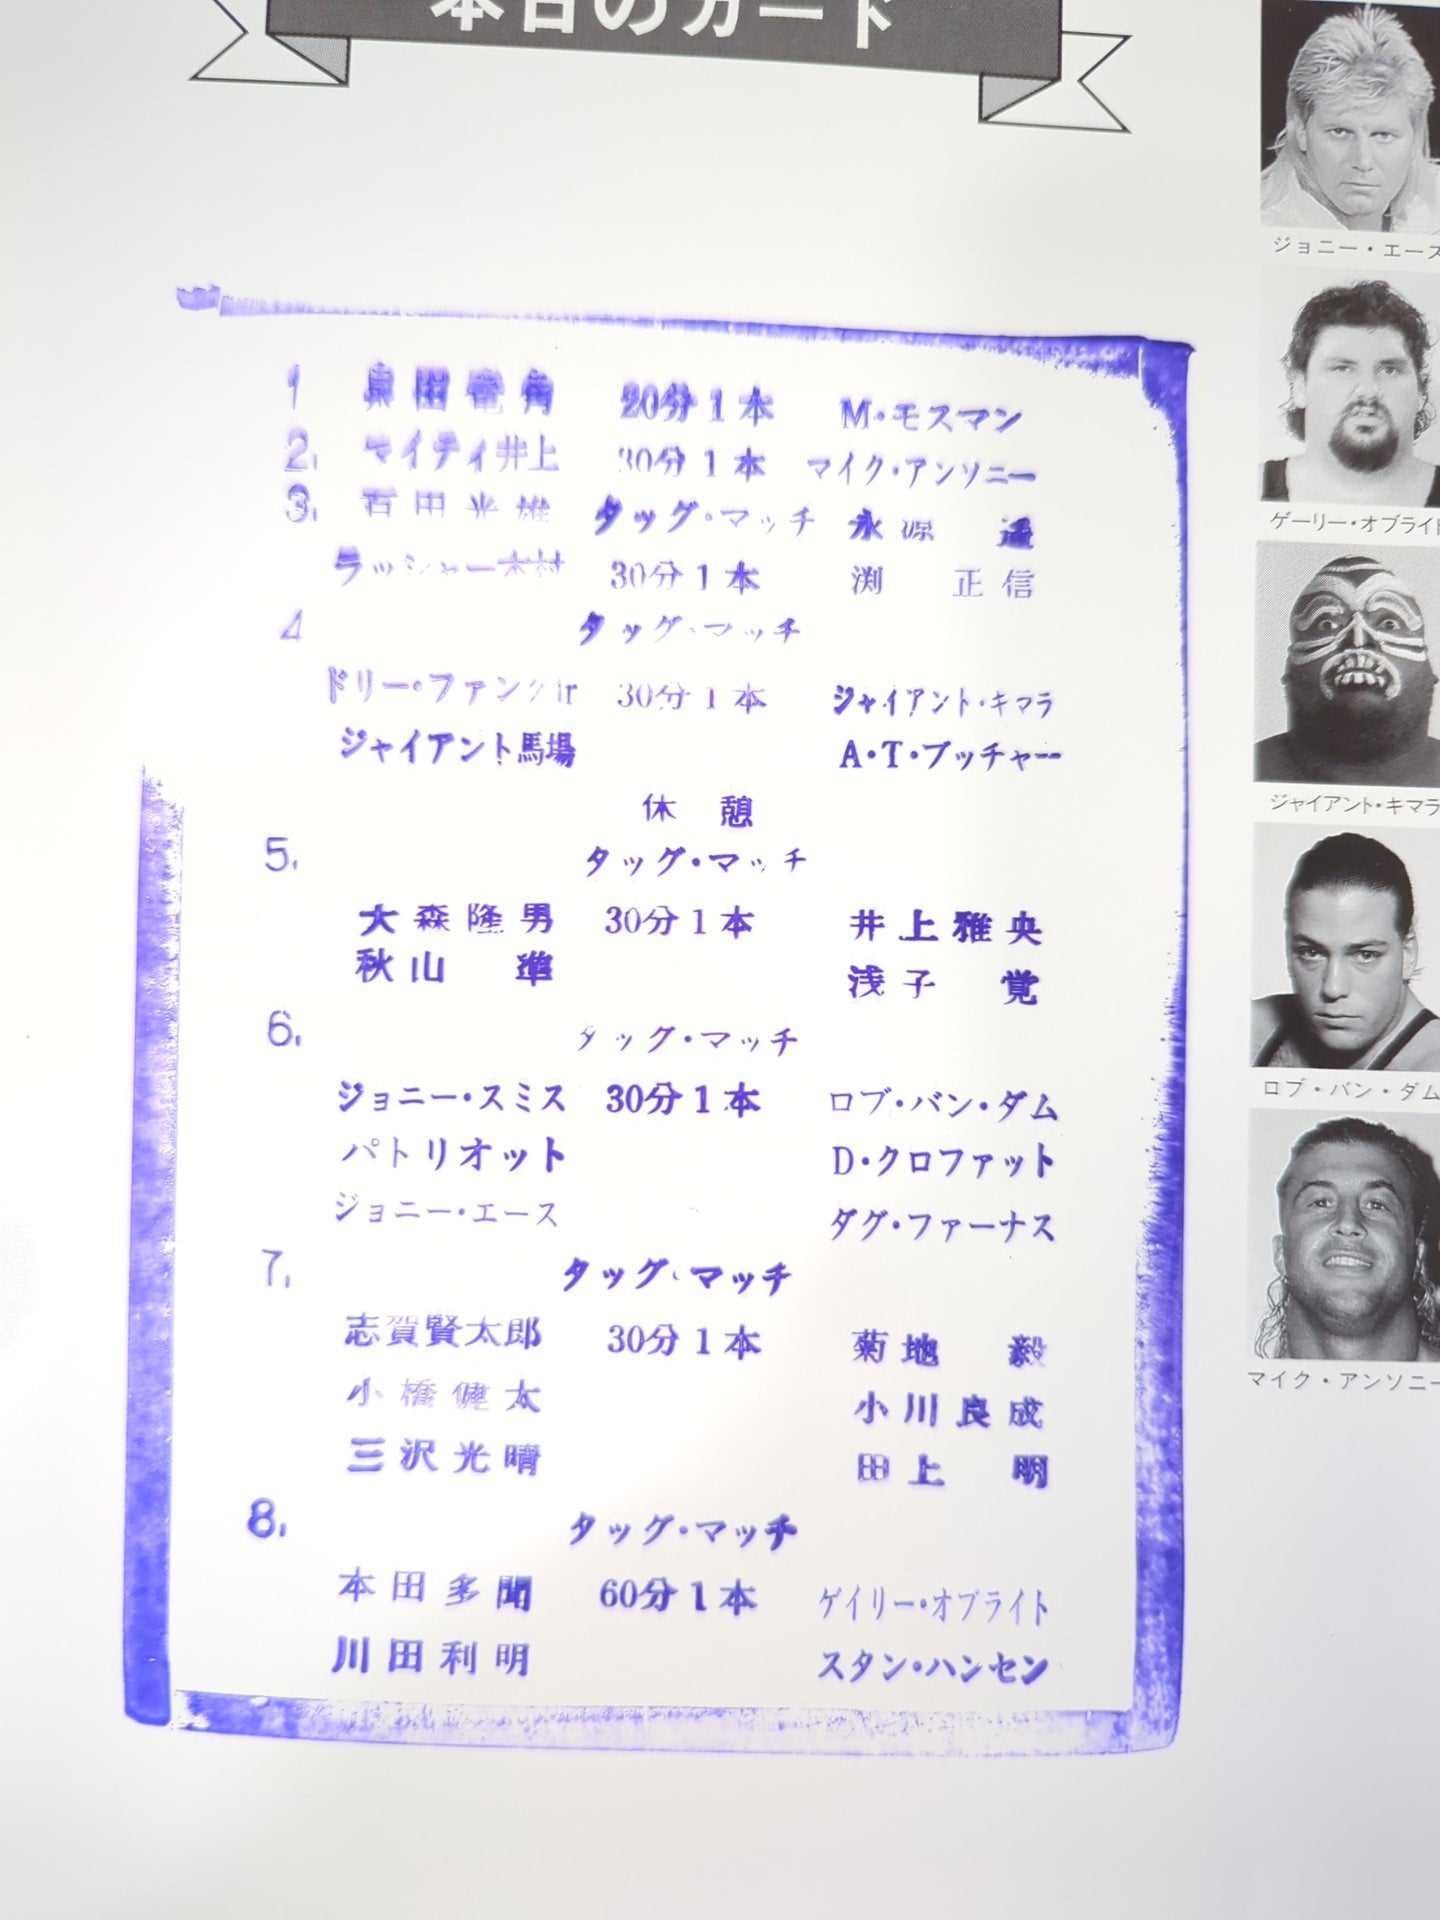 本日のカード
1 泉田竜角 20分1本 M・モスマン
2. マイティ井上 30分1本 マイク・アンソニー
3. 百田光雄 タッグ・マッチ 永源 遥
ラッシャー木村 30分1本 渕 正信
4 タッグ・マッチ
ドリー・ファンクJr 30分1本 ジャイアント・キマラ
ジャイアント馬場 A・T・ブッチャー
休憩
5. タッグ・マッチ
大森隆男 30分1本 井上雅央
秋山 準 浅子 覚
6. タッグ・マッチ
ジョニー・スミス 30分1本 ロブ・バン・ダム
パトリオット D・クロファット
ジョニー・エース ダグ・ファーナス
7. タッグ・マッチ
志賀賢太郎 30分1本 菊地 毅
小橋健太 小川良成
三沢光晴 田上 明
8. タッグ・マッチ
本田多聞 60分1本 ゲイリー・オブライト
川田利明 スタン・ハンセン
ジョニー・エース
ゲーリー・オブライト
ジャイアント・キマラ
ロブ・バン・ダム
マイク・アンソニー